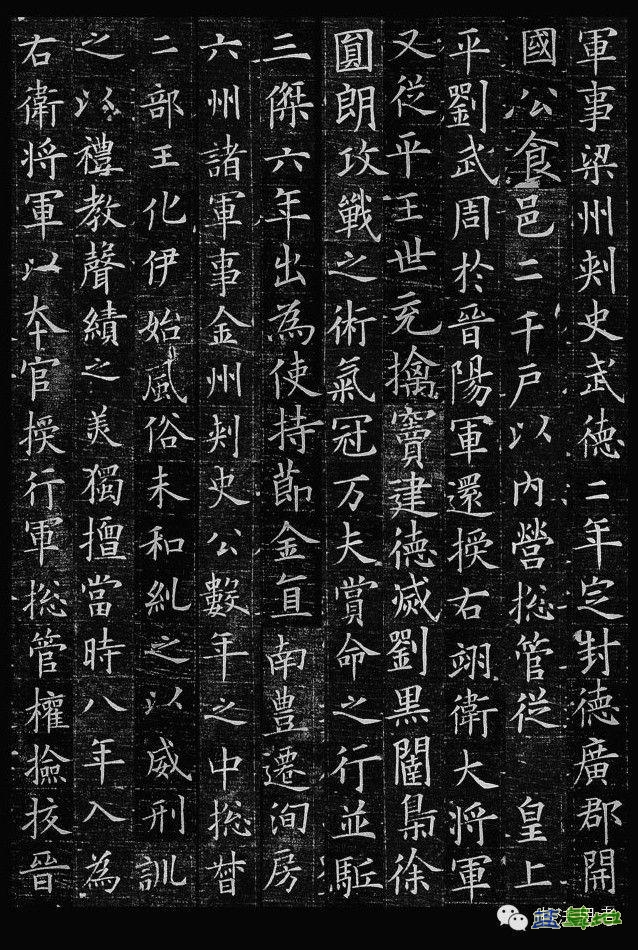 軍事梁州刾史武德二年㝎封德廣郡開
國公食邑二千戸以内營捴管從 皇上
平劉武周於晉陽軍還授右翊衛大將軍
又從平王世充擒竇建德滅劉黒闥梟徐
圎朗攻戰之術氣冠万夫賞命之行並駈
三傑六年出為使持節金直南豊遷洵房
六州諸軍事金州刾史公數年之中捴督
二部王化伊始風俗未和糺之以威刑訓
之以禮教聲績之美獨擅當時八年入為
右衛将軍以夲官授行軍捴管權撿挍晉